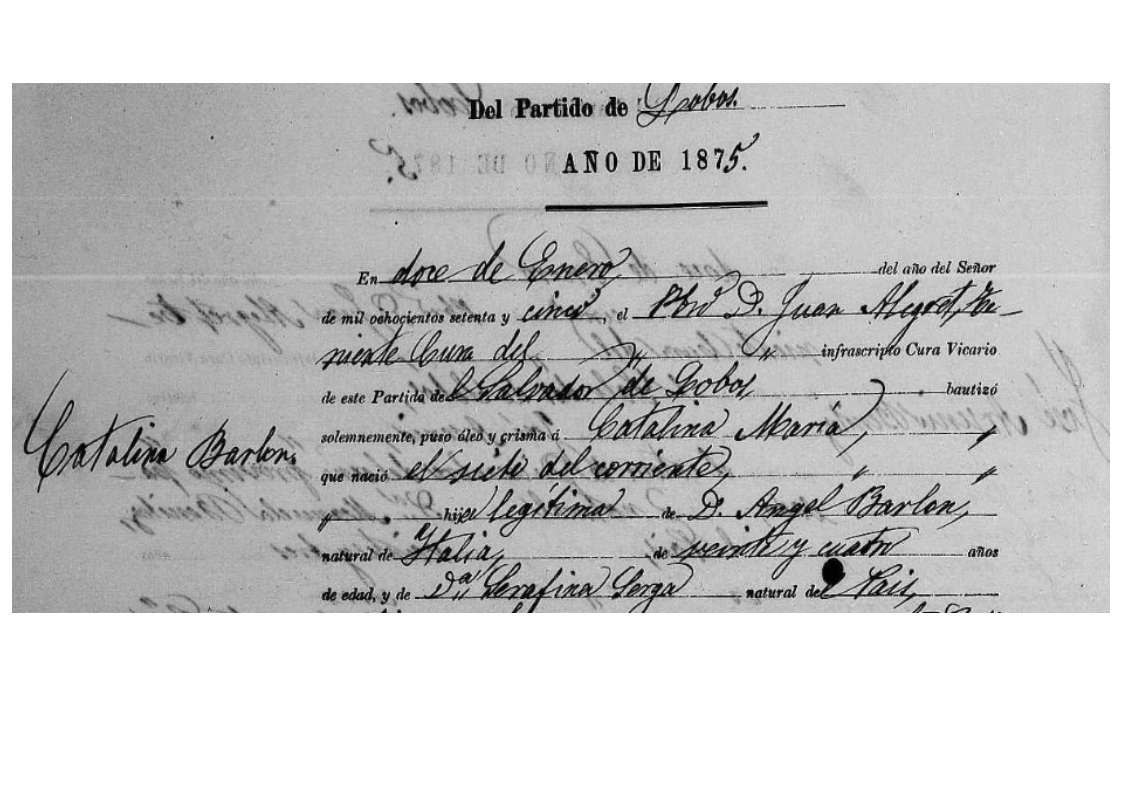 Del Partido de Lobos.
AÑO DE 1875.
En doce de Enero, del año del Señor
de mil ochocientos setenta y cinco, el Pbro D. Juan Alegret, Te-
niente Cura del " " infrascripto Cura Vicario
de este Partido del Salvador de Lobos, bautizó
solemnemente, puso óleo y crisma á Catalina María, "
Catalina Barlon.
que nació el siete del corriente, " "
" hija legítima de D. Angel Barlon,
natural de Italia, de veinte y cuatro años
de edad, y de Da Serafina Serga natural del Pais,